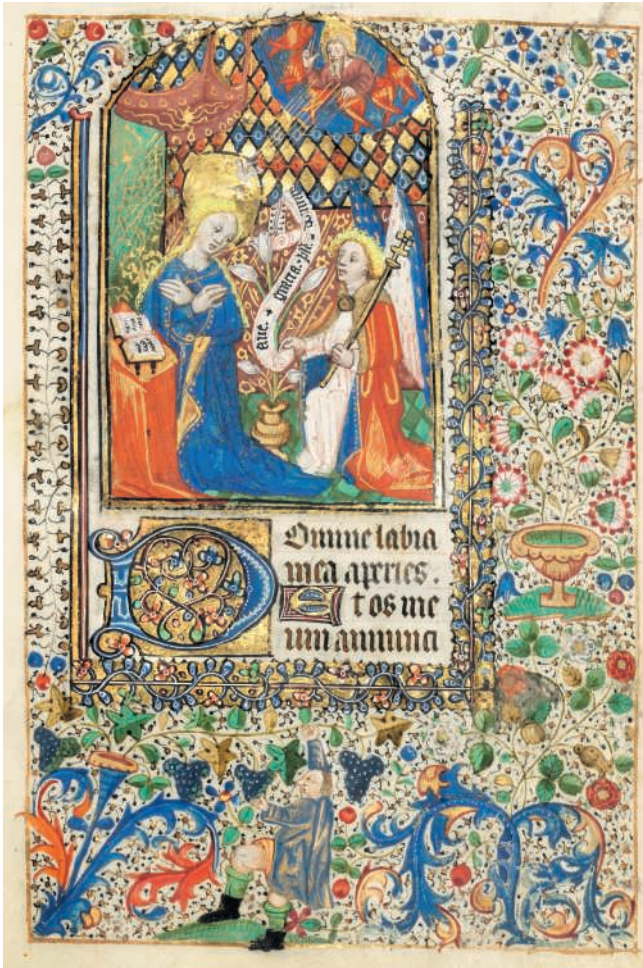 aue . gracia . ple
Domine labia
mea aperies .
Et os me
um annunci